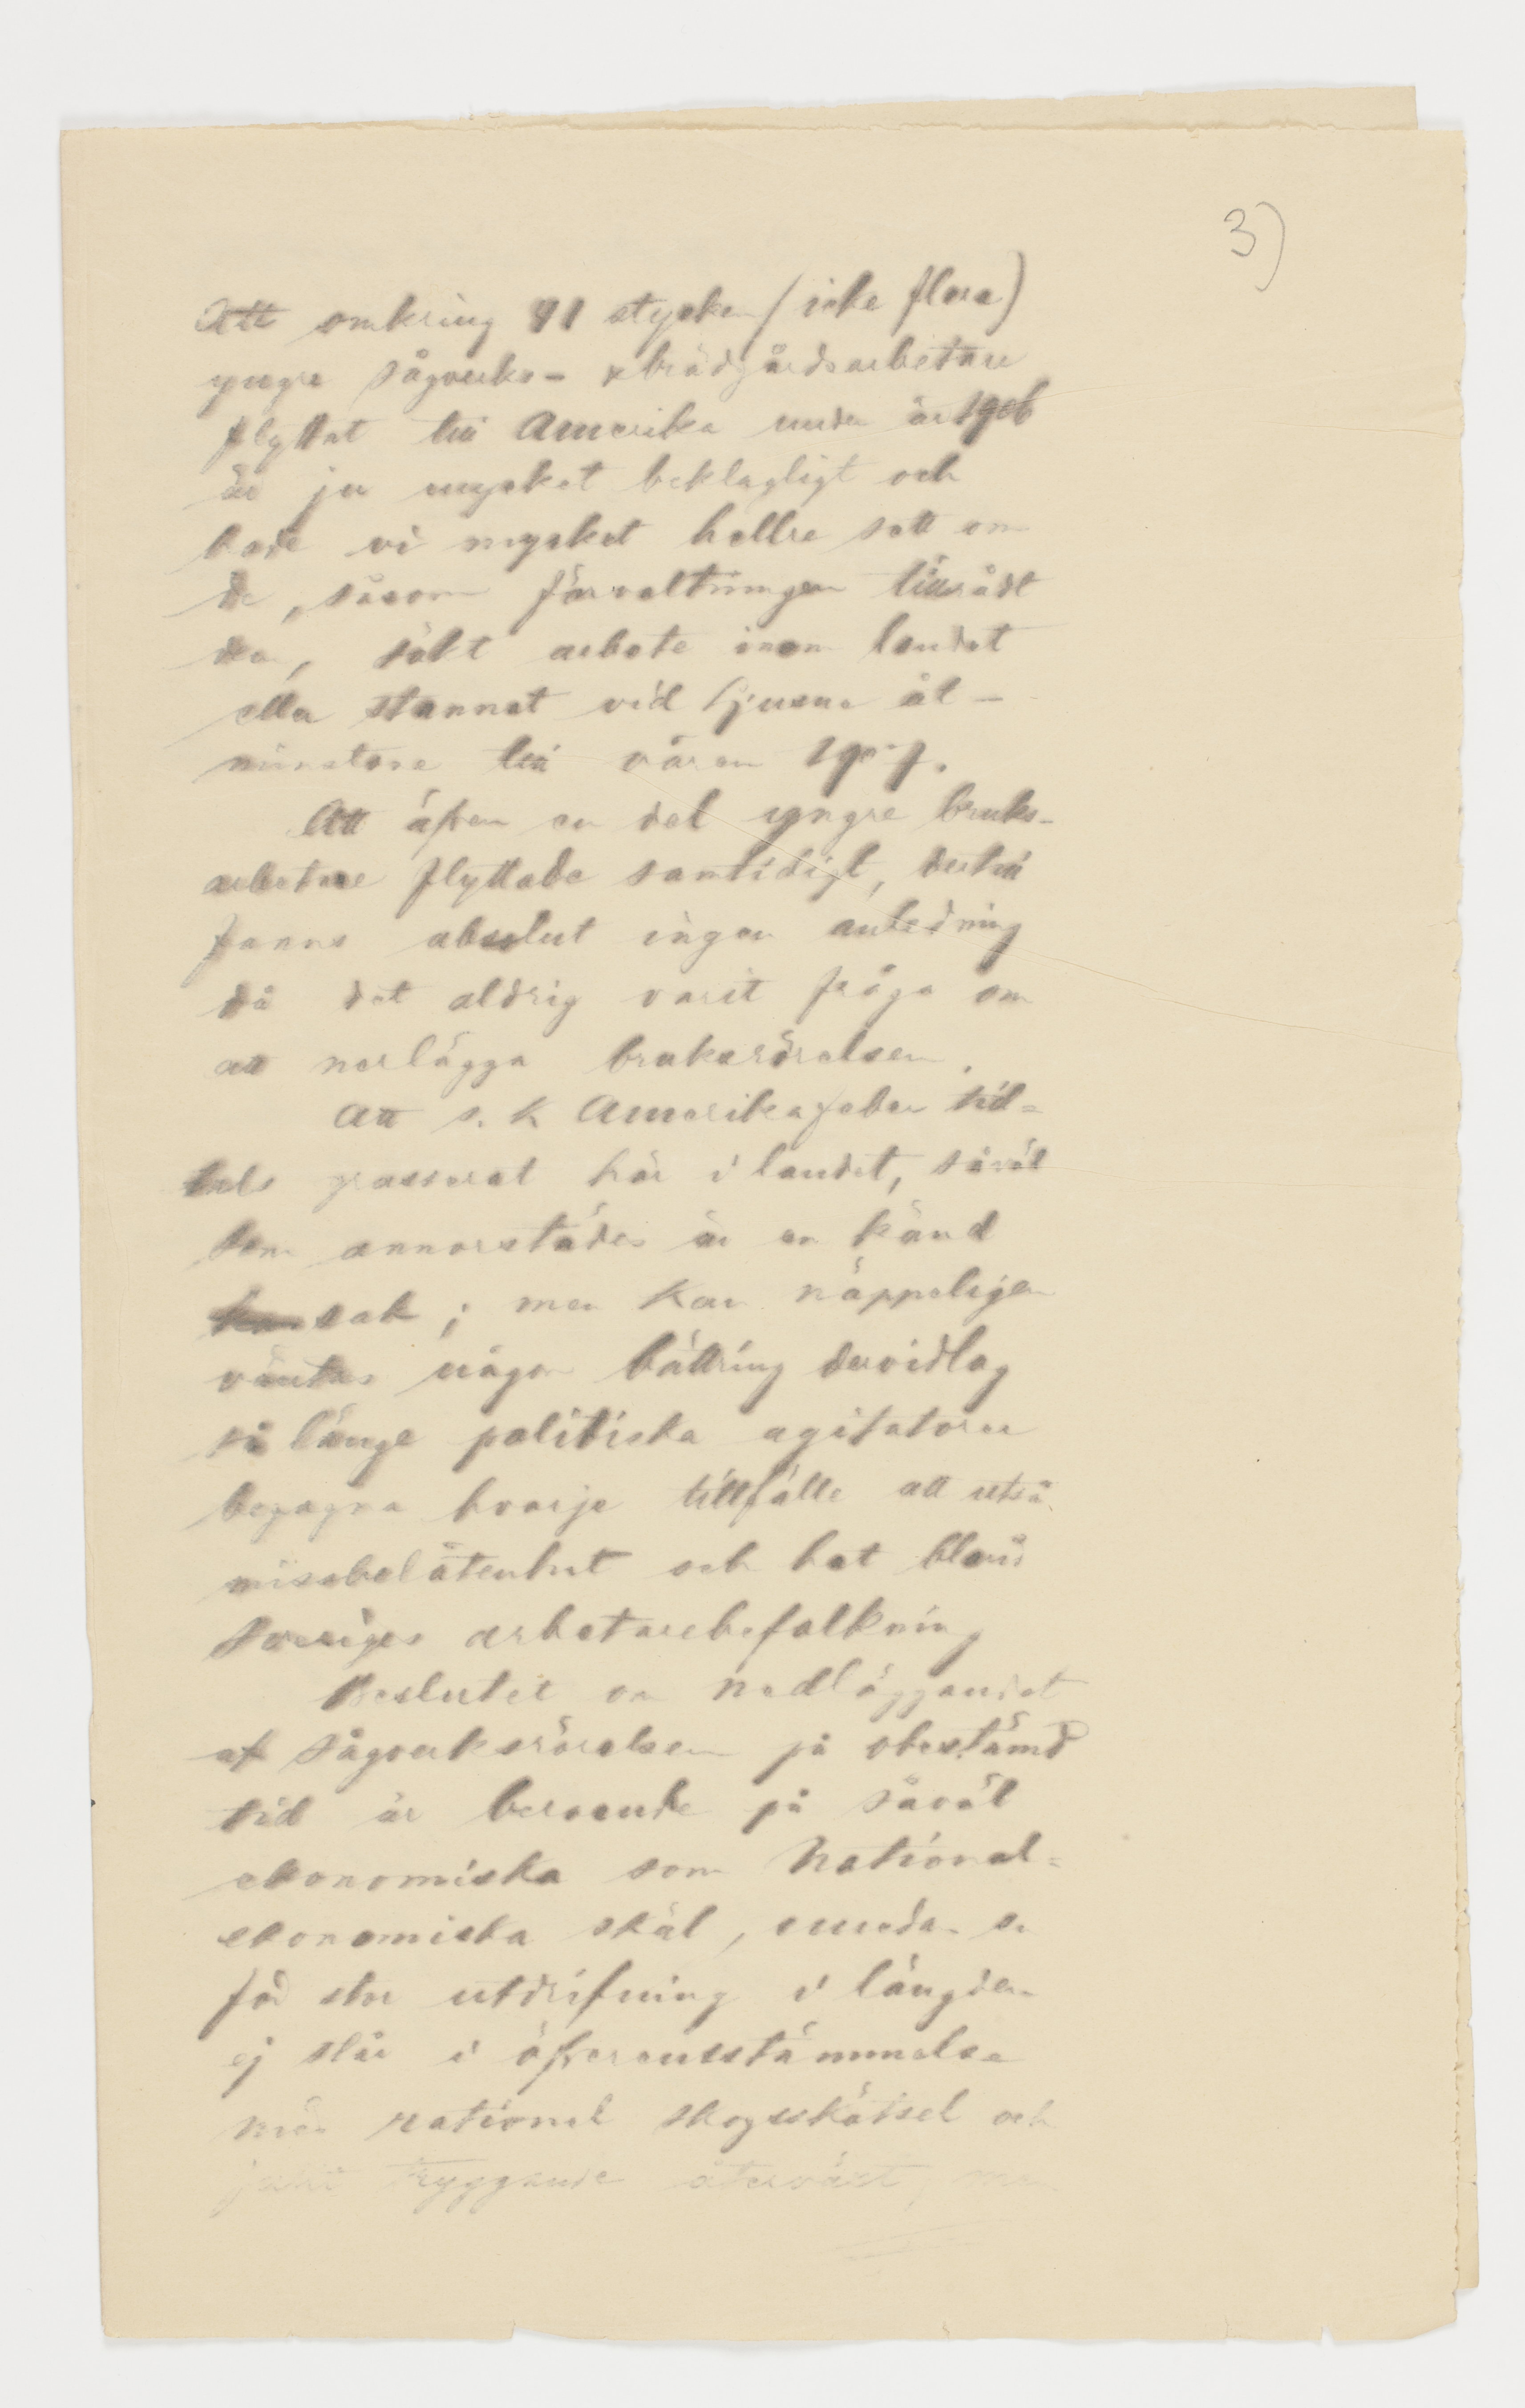 3)
Att omkring 91 stycken (icke flera)
yngre sågverks- & brädgårdsarbetare
flyttat till Amerika under år 1906
är ju mycket beklagligt och
hade vi mycket hellre sett om
de, såsom förvaltningen tillrådt
dem, sökt arbete inom landet
eller stannat vid Ljusne åt-
minstone till våren 1907.
Att äfven en del yngre bruks-
arbetare flyttade samtidigt, dertill
fanns absolut ingen anledning
då det aldrig varit fråga om
att nerlägga bruksrörelsen.
Att s. k Amerikafeber tid=
tals grasserat här i landet, såväl
som annorstädes är en känd
sak; men kan näppeligen
väntas någon bättring dervidlag
så länge politiska agitatorer
begagna hvarje tillfälle att utså
missbelåtenhet och hat bland
Sveriges arbetarebefolkning
Beslutet om nedläggandet
af sågverksrörelsen på obestämd
tid är beroende på såväl
ekonomiska som National=
ekonomiska skäl, emedan en
för stor utdrifning i längden
ej står i öfverensstämmelse
med rationel skogsskötsel och
tryggande återväxt, men